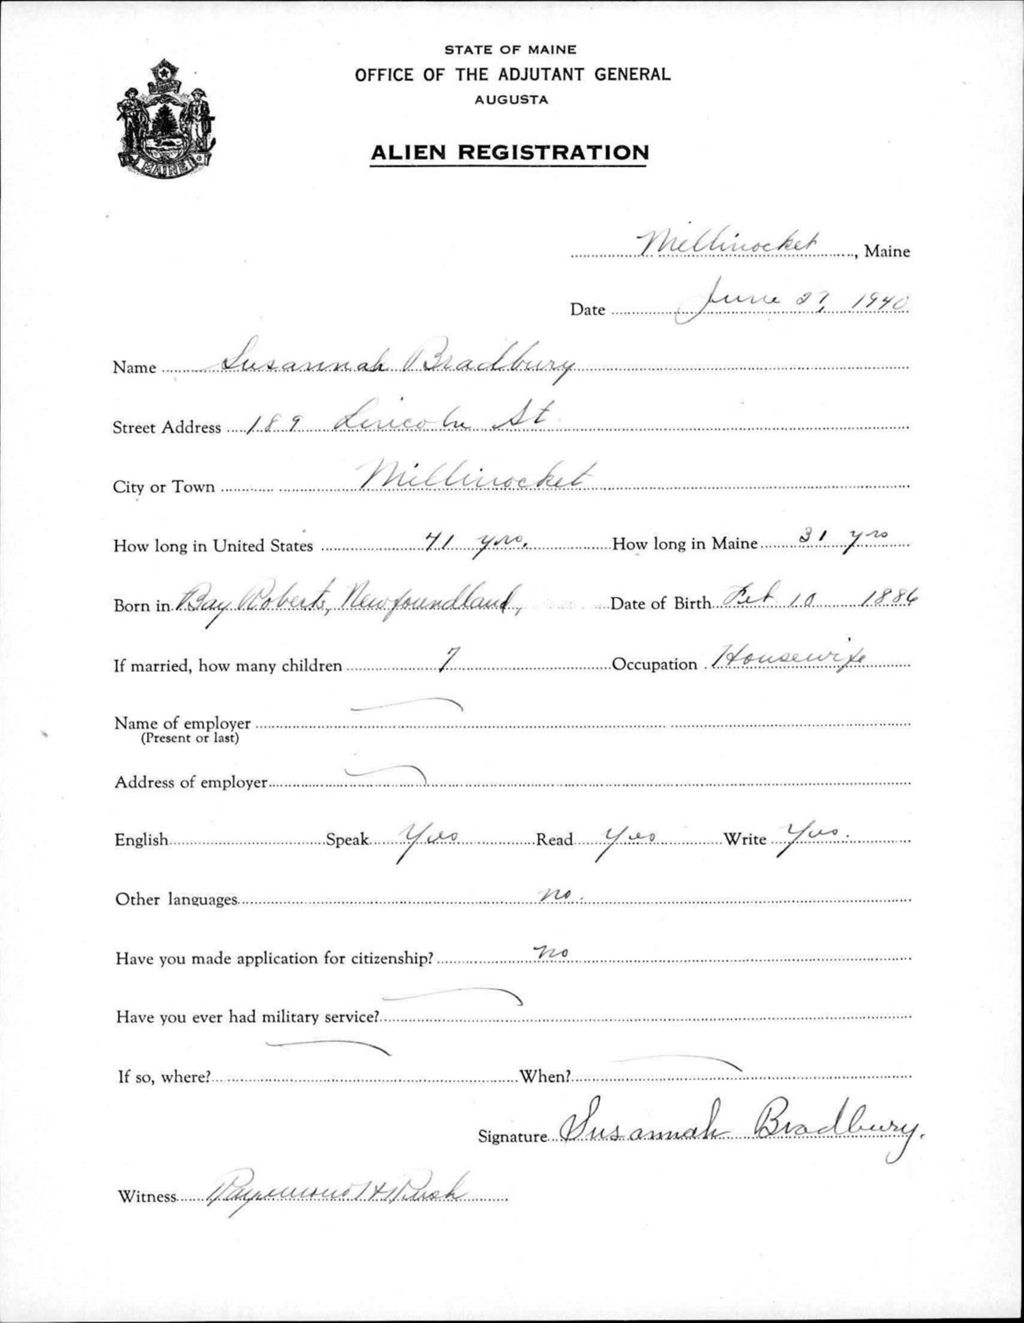 STATE OF MAINE
OFFICE OF THE ADJUTANT GENERAL
AUGUSTA
ALIEN REGISTRATION
MAINE
Millinocket, Maine
Date June 27, 1940
Name Susannah Bradbury
Street Address 189 Lincoln St
City or Town Millinocket
How long in United States 41 yrs. How long in Maine 31 yrs
Born in Bay Roberts, Newfoundland, Date of Birth Feb 10 1886
If married, how many children 7 Occupation Housewife
Name of employer
(Present or last)
Address of employer
English Speak Yes Read Yes Write Yes.
Other languages no.
Have you made application for citizenship? no
Have you ever had military service?
If so, where? When?
Signature Susannah Bradbury.
Witness Raymond H Rush